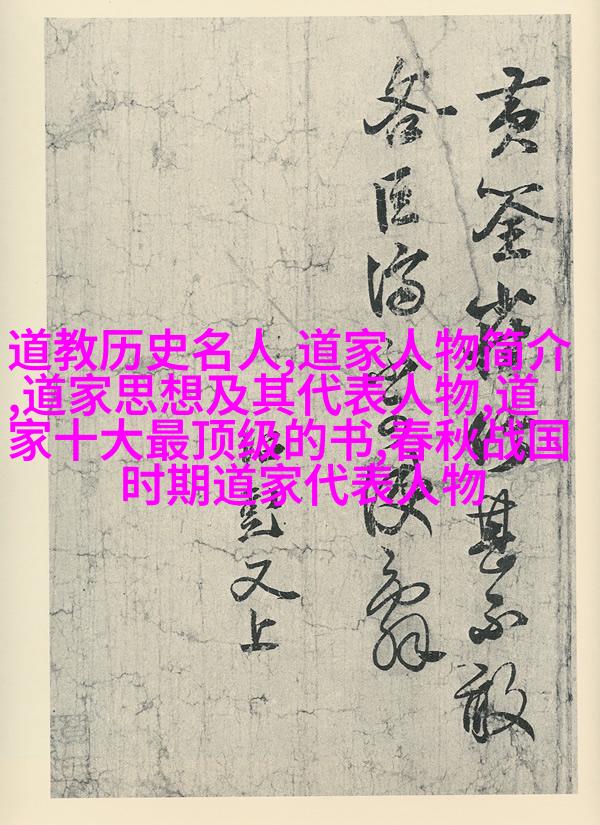 道教历史名人,道家人物简介
,道家思想及其代表人物,道
家十大最顶级的书,春秋战国
时期道家代表人物
黄筌甚不敢
又上